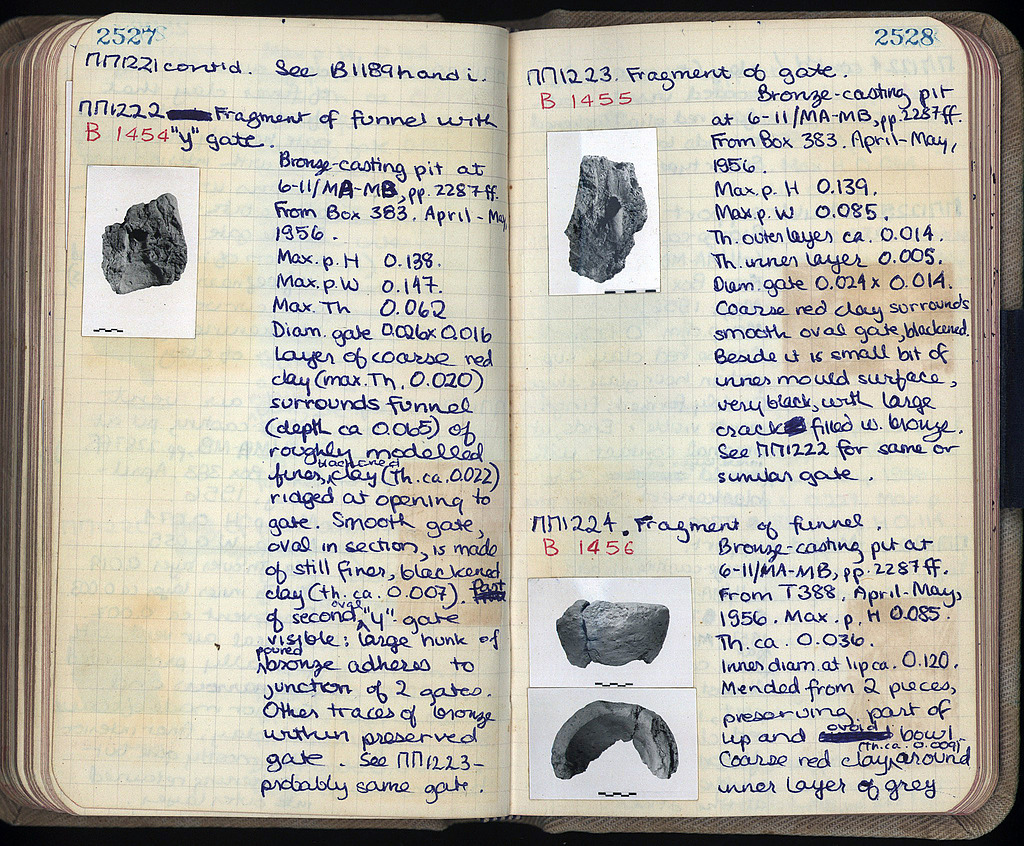 2527
ΠΠ1221 contd. See B1189h and i.
ΠΠ1222 Fragment of funnel with
B 1454 "y" gate.
Bronze-casting pit at
6-11/MA-MB, pp. 2287ff.
From Box 383. April-May,
1956.
Max. p. H 0.138.
Max. p. W 0.147.
Max. Th 0.062
Diam. gate 0.026x0.016
Layer of coarse red
clay (max. Th. 0.020)
surrounds funnel
(depth ca 0.065) of
roughly modelled
blackened
finer, clay (Th. ca. 0.022)
ridged at opening to
gate. Smooth gate,
oval in section, is made
of still finer, blackened
clay (th. ca. 0.007). Part
oval
of second, "y" gate
visible: large hunk of
poured
bronze adheres to
junction of 2 gates.
Other traces of bronze
within preserved
gate. See ΠΠ1223-
probably same gate.
2528
ΠΠ1223. Fragment of gate.
B 1455
Bronze-casting pit
at 6-11/MA-MB, pp. 2287ff.
From Box 383. April-May,
1956.
Max. p. H 0.139.
Max. p. W 0.085.
Th. outer layers ca. 0.014.
Th. inner layer 0.005.
Diam. gate 0.024 x 0.014.
Coarse red clay surrounds
smooth oval gate, blackened.
Beside it is small bit of
inner mould surface,
very black, with large
crack filled w. bronze.
See ΠΠ1222 for same or
similar gate.
ΠΠ1224. Fragment of funnel.
B 1456
Bronze-casting pit at
6-11/MA-MB, pp. 2287ff.
From T388. April-May,
1956. Max. p. H 0.085.
Th. ca. 0.036.
Inner diam. at lip ca. 0.120.
Mended from 2 pieces,
preserving part of
lip and ovoid bowl.
(th. ca. 0.009)
Coarse red clay, around
inner layer of grey